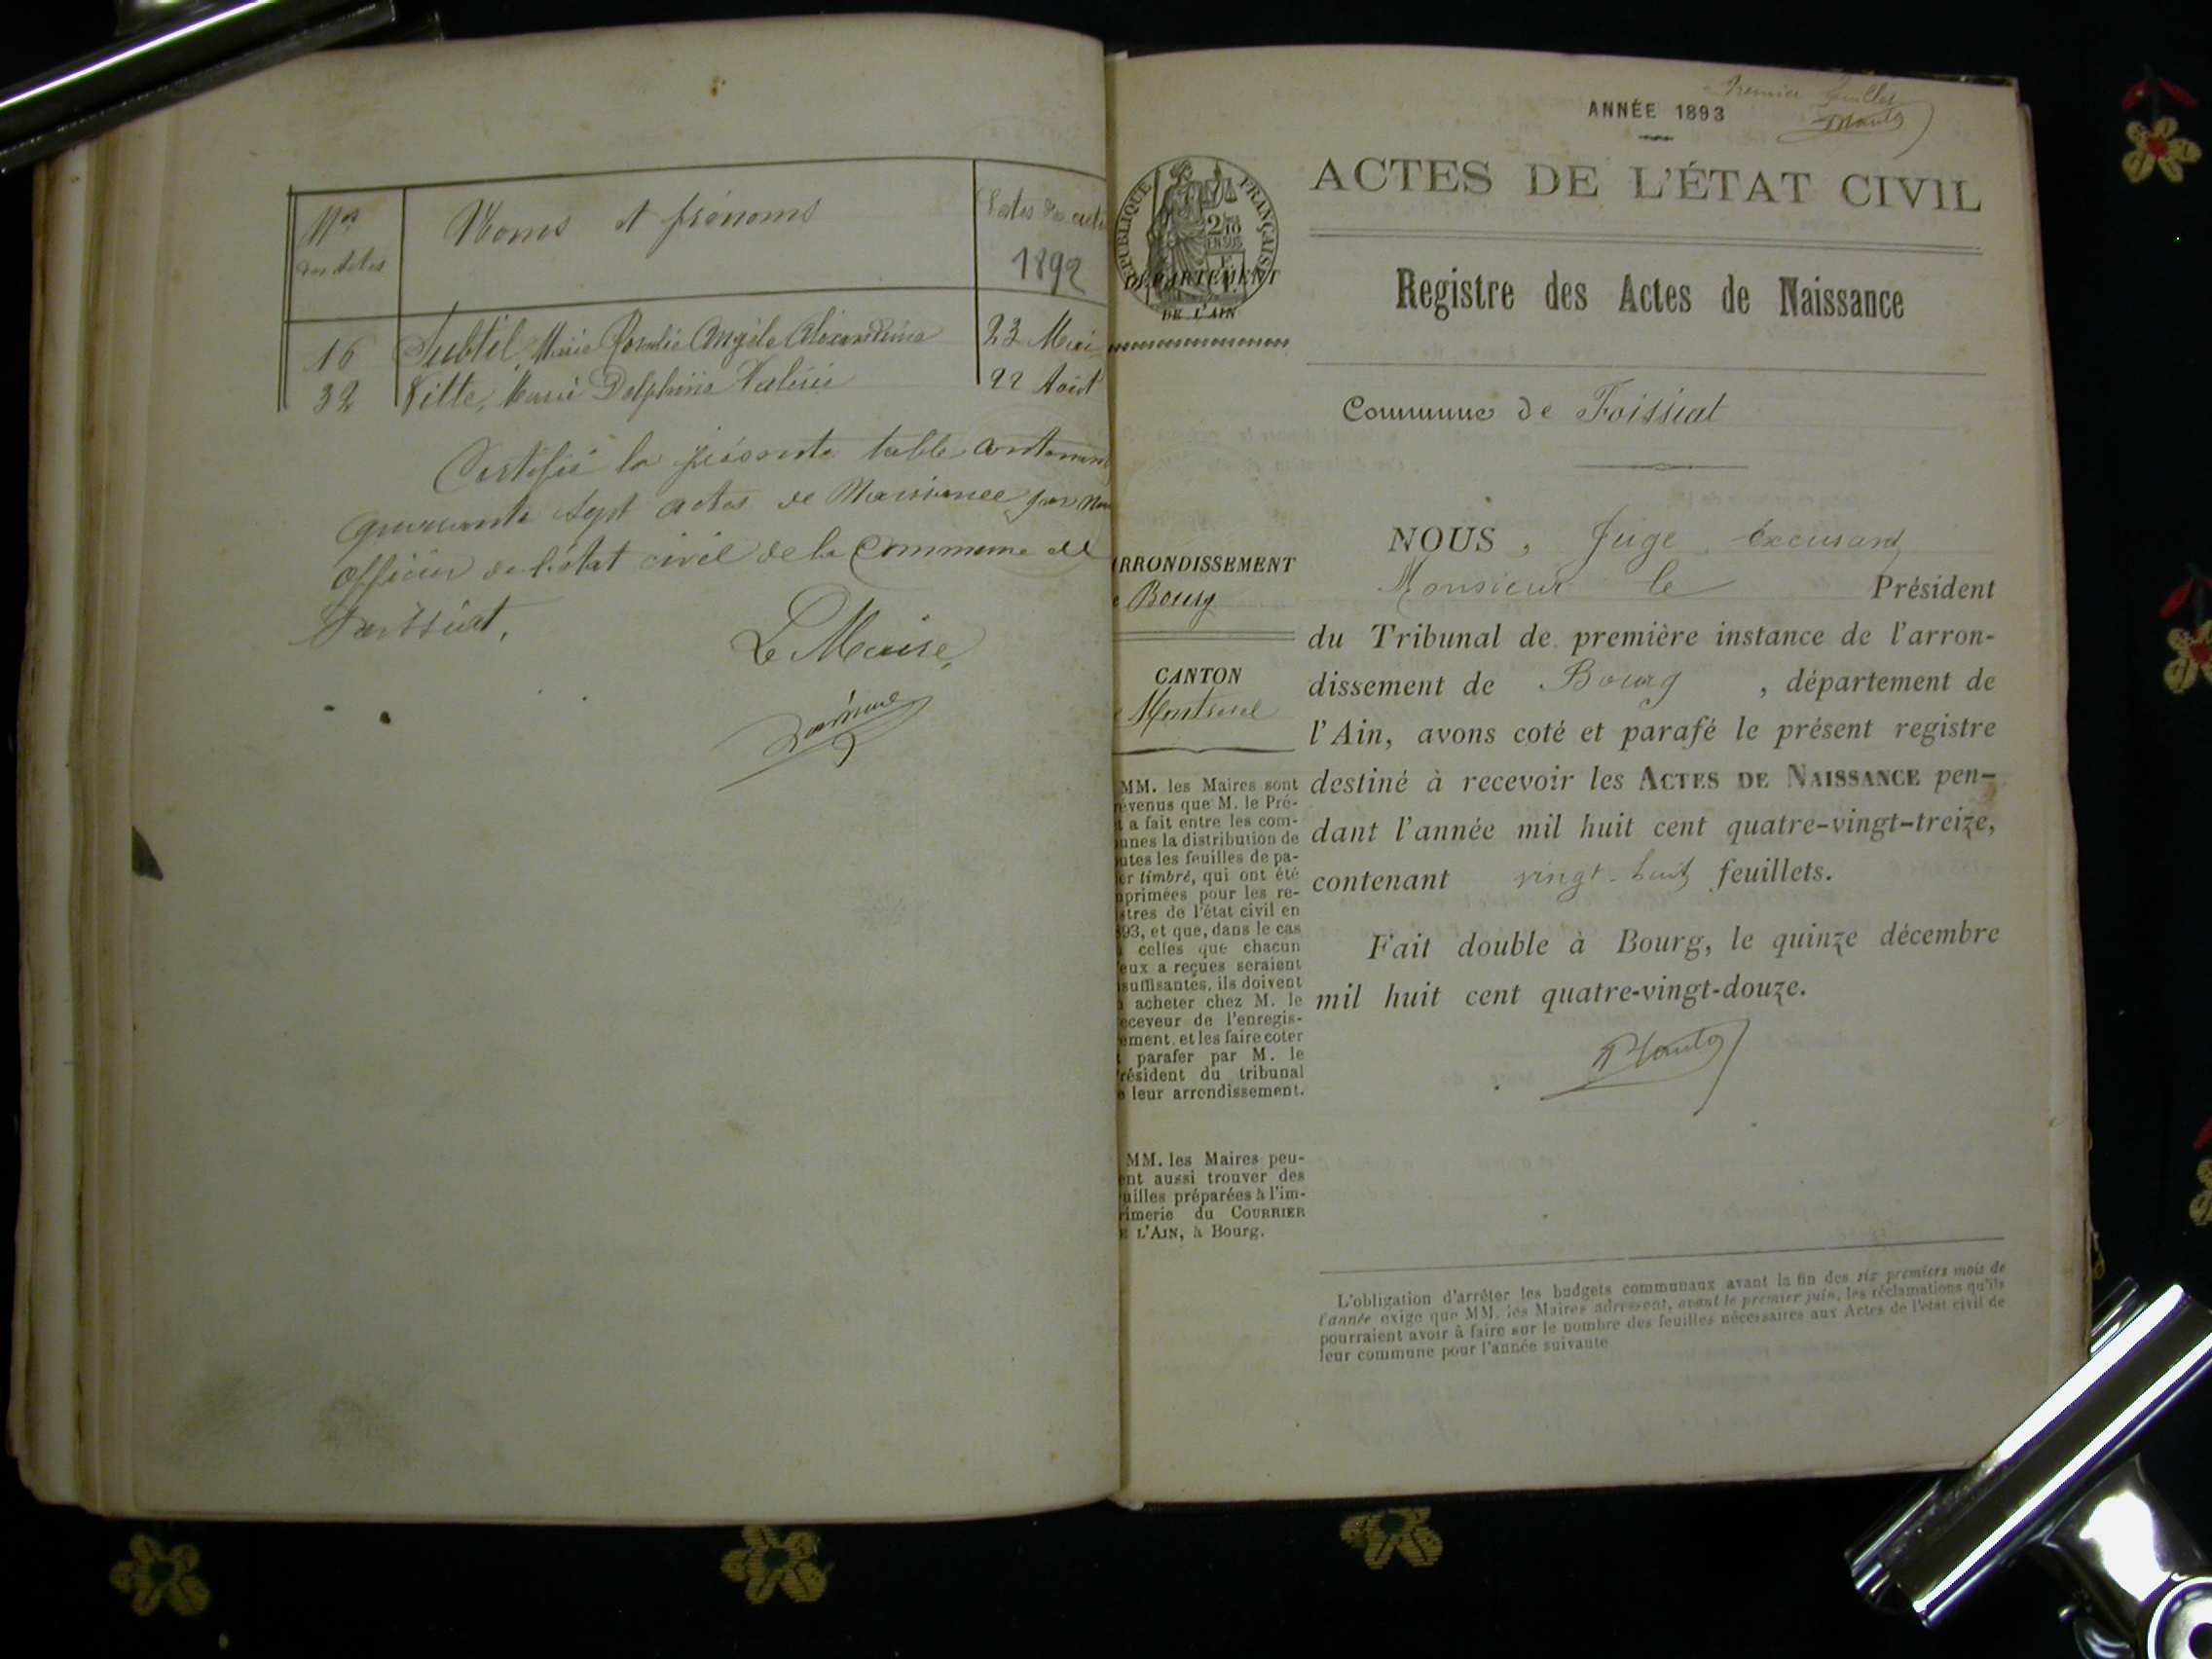 Nos des Actes
Noms et prénoms
Dates des actes
1892
16 Subtil, Marie Rosalie Angèle Alexandrine 23 Mai
32 Vitte, Marie Delphine Valérie 22 Août
Certifié la présente table contenant
quarante sept actes de Naissance par nou
officier de l'état civil de la Commune de
Foissiat,
Le Maire,
Premier feuillet
ANNÉE 1893
ACTES DE L'ÉTAT CIVIL
RÉPUBLIQUE FRANÇAISE
2/10 EN SUS
DÉPARTEMENT
DE L'AIN
Registre des Actes de Naissance
Commune de Foissiat
ARRONDISSEMENT
e Bourg
CANTON
e Montrevel
MM. les Maires sont
révenus que M. le Pré-
t a fait entre les com-
unes la distribution de
utes les feuilles de pa-
er timbré, qui ont été
primées pour les re-
stres de l'état civil en
893, et que, dans le cas
celles que chacun
'eux a reçues seraient
suffisantes, ils doivent
acheter chez M. le
eceveur de l'enregis-
ement, et les faire coter
t parafer par M. le
résident du tribunal
e leur arrondissement.
MM. les Maires peu-
ent aussi trouver des
uilles préparées à l'im-
rimerie du COURRIER
E L'AIN, à Bourg.
NOUS, Juge excusant
Monsieur le Président
du Tribunal de première instance de l'arron-
dissement de Bourg, département de
l'Ain, avons coté et parafé le présent registre
destiné à recevoir les ACTES DE NAISSANCE pen-
dant l'année mil huit cent quatre-vingt-treize,
contenant vingt-huit feuillets.
Fait double à Bourg, le quinze décembre
mil huit cent quatre-vingt-douze.
L'obligation d'arrêter les budgets communaux avant la fin des six premiers mois de
l'année exige que MM. les Maires adressent, avant le premier juin, les réclamations qu'ils
pourraient avoir à faire sur le nombre des feuilles nécessaires aux Actes de l'état civil de
leur commune pour l'année suivante